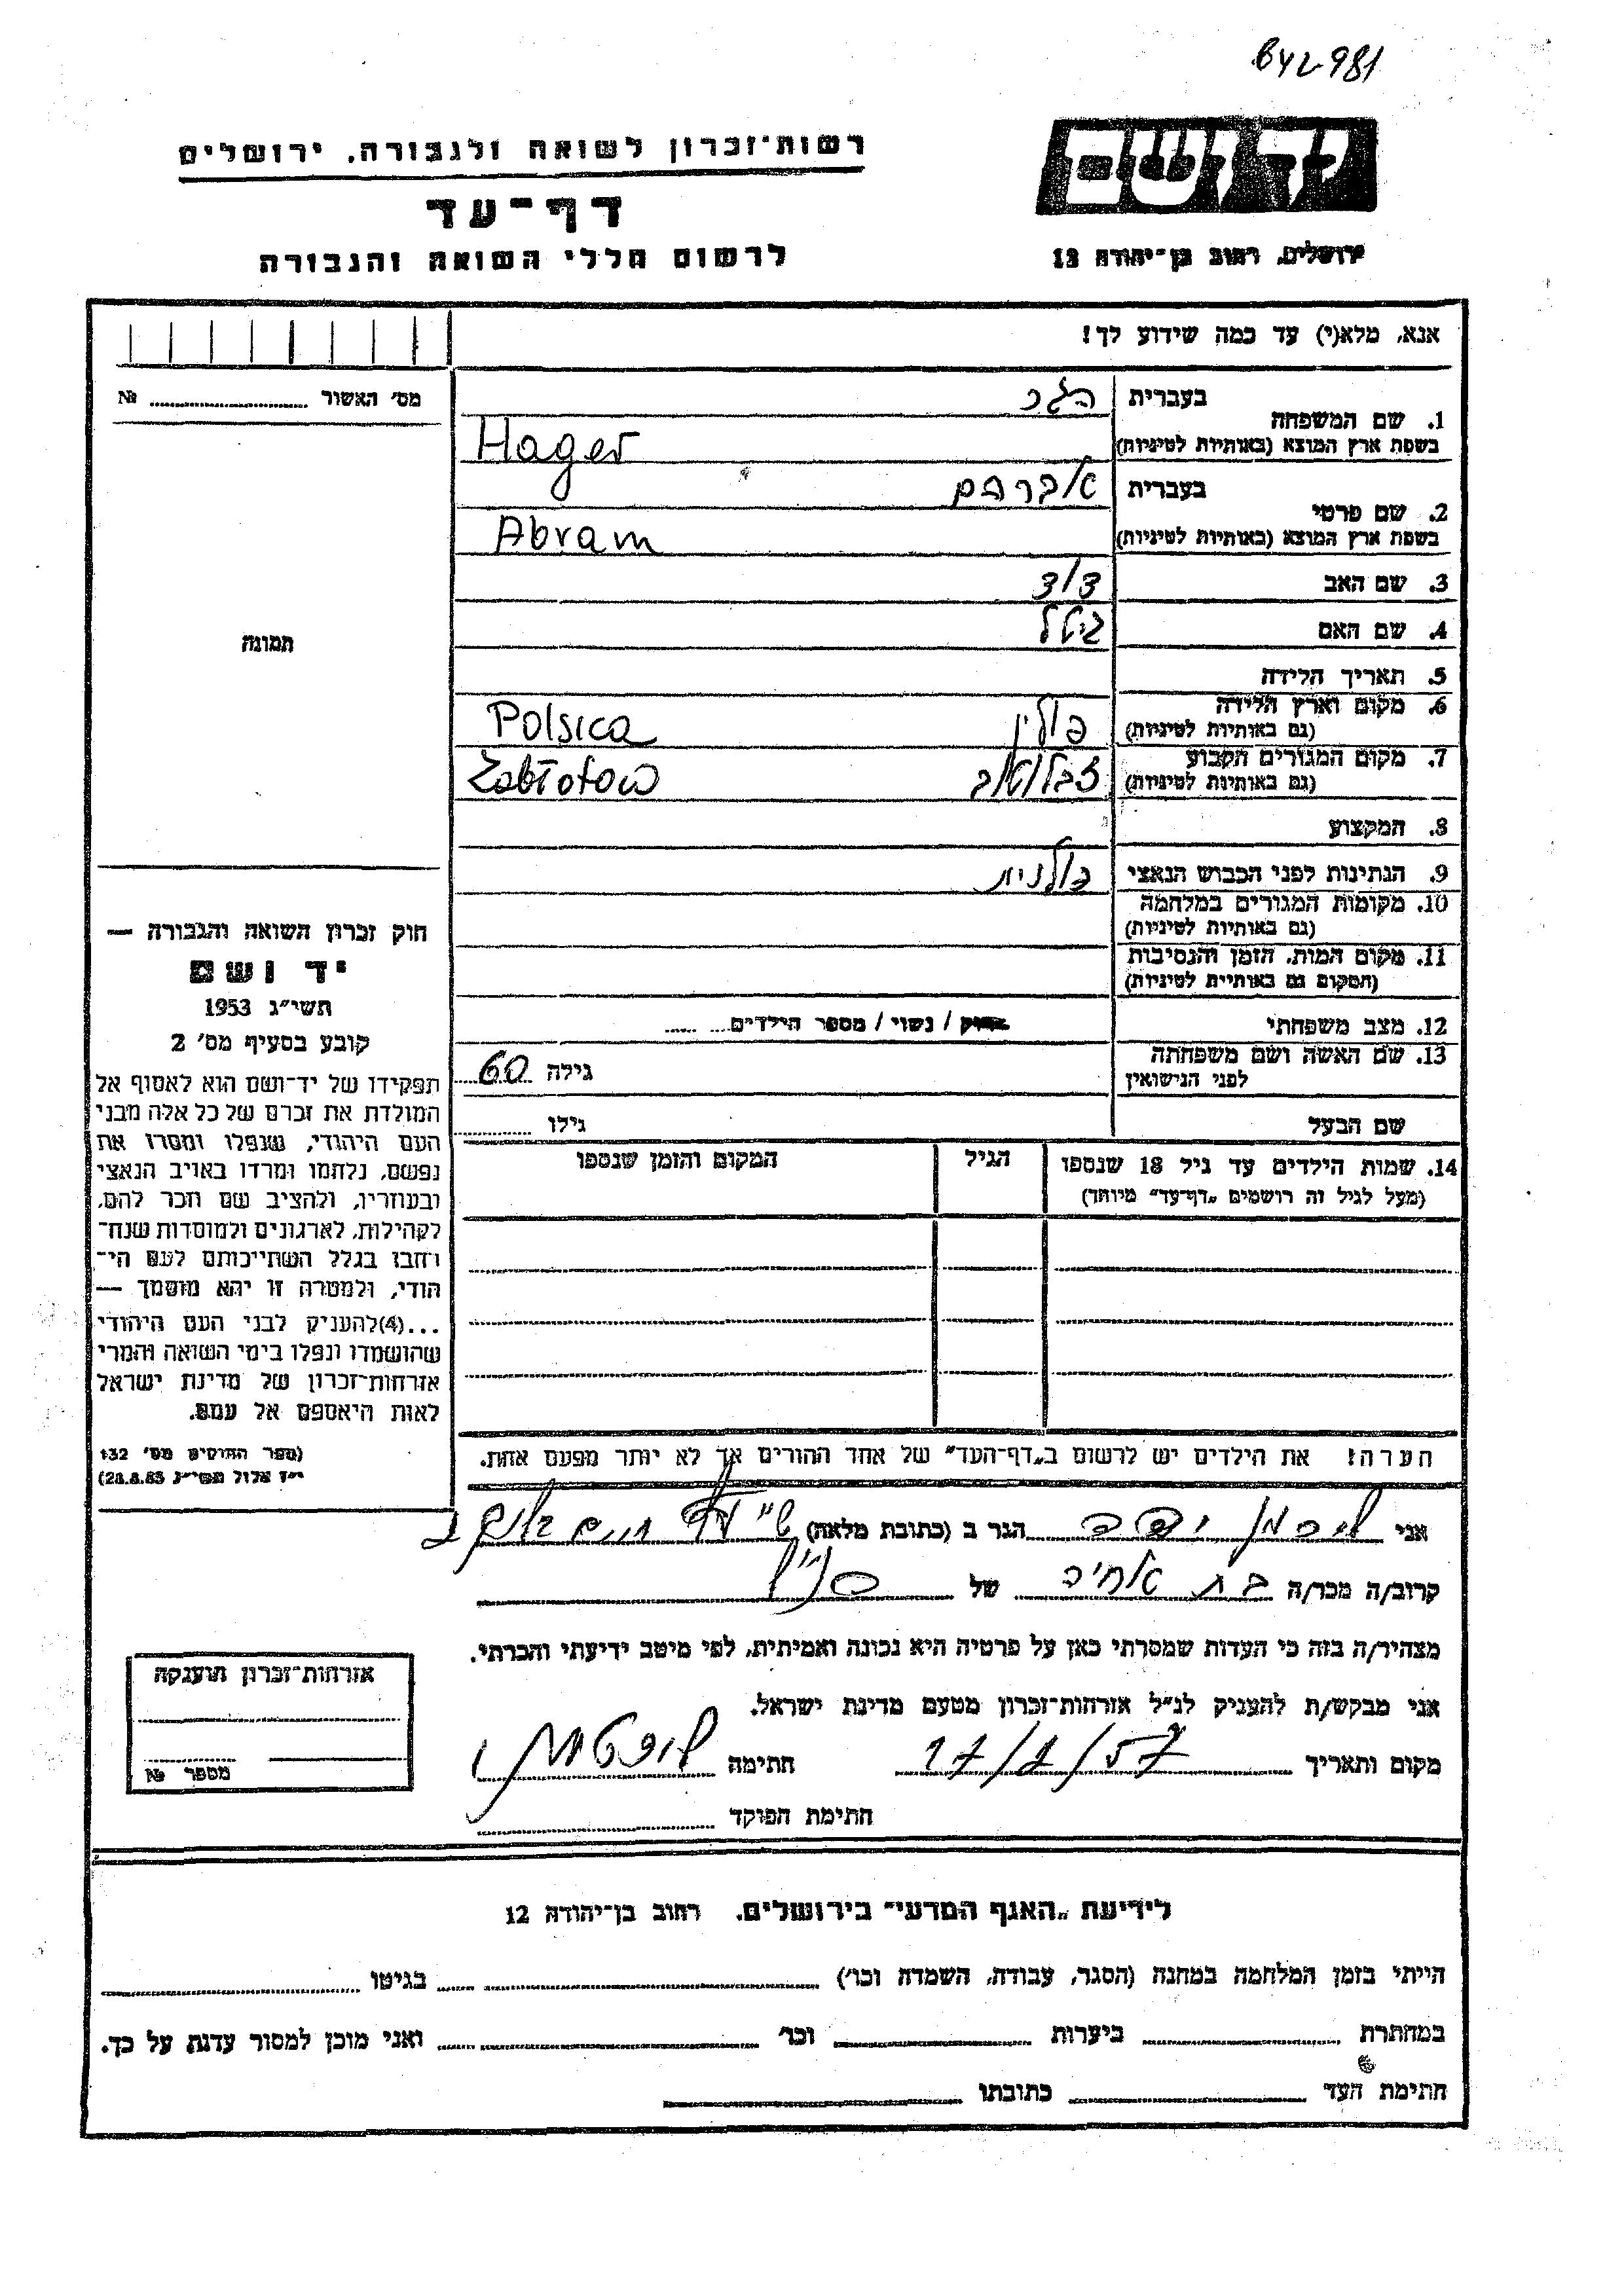 642981
יד ושם
רשות־זכרון לשואה ולגבורה, ירושלים
דף־עד
לרשום חללי השואה והגבורה
ירושלים, רחוב בן־יהודה 12
אנא, מלא(י) עד כמה שידוע לך!
מס' האשור № 
תמונה
1. שם המשפחה בעברית הגר
בשפת ארץ המוצא (באותיות לטיניות) Hager
2. שם פרטי בעברית אברהם
בשפת ארץ המוצא (באותיות לטיניות) Abram
3. שם האב
4. שם האם
5. תאריך הלידה
6. מקום וארץ הלידה פולין Polsica
(גם באותיות לטיניות)
7. מקום המגורים הקבוע זבלוטוב Zabłotow
(גם באותיות לטיניות)
8. המקצוע
9. הנתינות לפני הכבוש הנאצי פולנית
10. מקומות המגורים במלחמה
(גם באותיות לטיניות)
11. מקום המות, הזמן והנסיבות
(המקום גם באותיית לטיניות)
12. מצב משפחתי / נשוי / מספר הילדים
13. שם האשה ושם משפחתה
לפני הנישואין גילה 60
שם הבעל גילו
14. שמות הילדים עד גיל 18 שנספו הגיל המקום והזמן שנספו
(מעל לגיל זה רושמים „דף־עד” מיוחד)
חוק זכרון השואה והגבורה —
יד ושם
תשי״ג 1953
קובע בסעיף מס' 2
תפקידו של יד־ושם הוא לאסוף אל
המולדת את זכרם של כל אלה מבני
העם היהודי, שנפלו ומסרו את
נפשם, נלחמו ומרדו באויב הנאצי
ובעוזריו, ולהציב שם וזכר להם,
לקהילות, לארגונים ולמוסדות שנח־
רבו בגלל השתייכותם לעם הי־
הודי, ולמטרה זו יהא מוסמך —
...(4)להעניק לבני העם היהודי
שהושמדו ונפלו בימי השואה והמרי
אזרחות־זכרון של מדינת ישראל
לאות היאספם אל עמם.
(ספר החוקים מס' 132
י״ז אלול תשי״ג 28.8.53)
הערה! את הילדים יש לרשום ב„דף־העד” של אחד ההורים אך לא יותר מפעם אחת.
אני הגר ב (כתובת מלאה)
קרוב/ה מכר/ה בת אחיו של
מצהיר/ה בזה כי העדות שמסרתי כאן על פרטיה היא נכונה ואמיתית, לפי מיטב ידיעתי והכרתי.
אני מבקש/ת להעניק לנ״ל אזרחות־זכרון מטעם מדינת ישראל.
מקום ותאריך חתימה
חתימת הפוקד
אזרחות־זכרון הוענקה
מספר №
לידיעת „האגף המדעי” בירושלים, רחוב בן־יהודה 12
הייתי בזמן המלחמה במחנה (הסגר, עבודה, השמדה וכו') בגיטו
במחתרת ביערות וכו' ואני מוכן למסור עדות על כך.
חתימת העד כתובתו